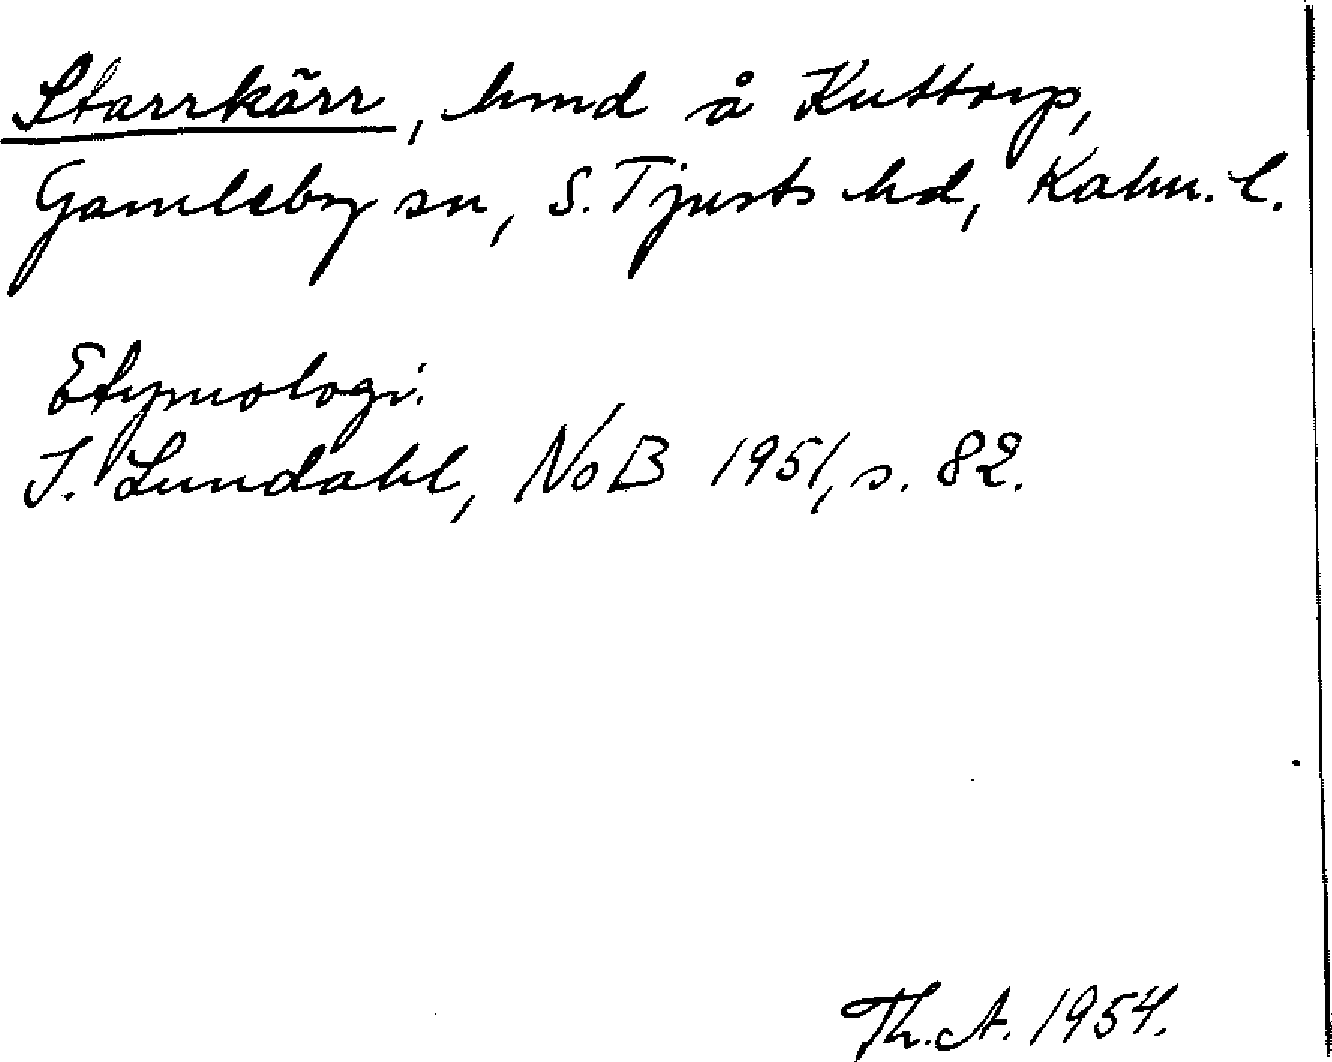 Starrkärr, lmnd å Kuttorp,
Gamleby sn, S. Tjusts hd, Kalm. l.
Etymologi:
I. Lundahl, NoB 1951, s. 82.
Th. A. 1954.